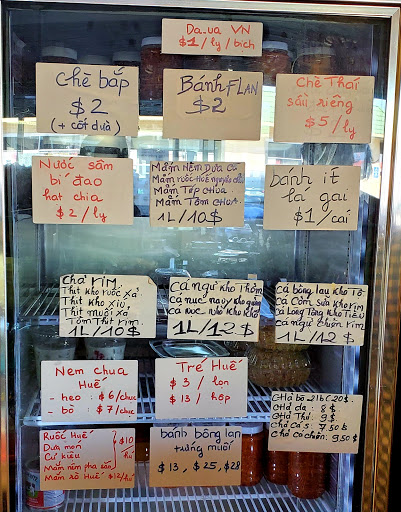 Da-ua VN
$1/ly/bịch
Chè bắp
$2
(+ cốt dừa)
Bánh FLAN
$2
Chè Thái
sầu riêng
$5/ly
Nước sâm
bí đao
hạt chia
$2/ly
Mắm Nêm Dưa Cà
Mắm ruốc Huế nguyên chất
Mắm Tép CHUA
Mắm Tôm CHUA
1L/10$
bánh ít
lá gai
$1/cái
Chả rim
Thịt kho ruốc xả
Thịt kho xíu
Thịt muối xả
Tôm Thịt rim
1L/10$
Cá ngừ kho Thơm
cá nục
kho
cá nục nhỏ kho khô
1L/12$
Cá bông lau kho Tộ
cá Cơm sữa kho rim
cá Lòng Tong kho Tiêu
cá ngừ chiên rim
1L/12$
Nem chua
Huế
- heo : $6/chục
- bò : $7/chục
Tré Huế
$3/lọn
$13/hộp
CHả bò - 2lb (20$
CHả da : 8$
CHả Thủ : 9$
Chả Cá S : 7.50$
Chả Cá chiên : 9.50$
Ruốc Huế
Dưa món
Củ kiệu
Mắm nêm pha sẵn
$10
hủ
Mắm rò Huế $12/hủ
bánh bông lan
trứng muối
$13, $25, $28